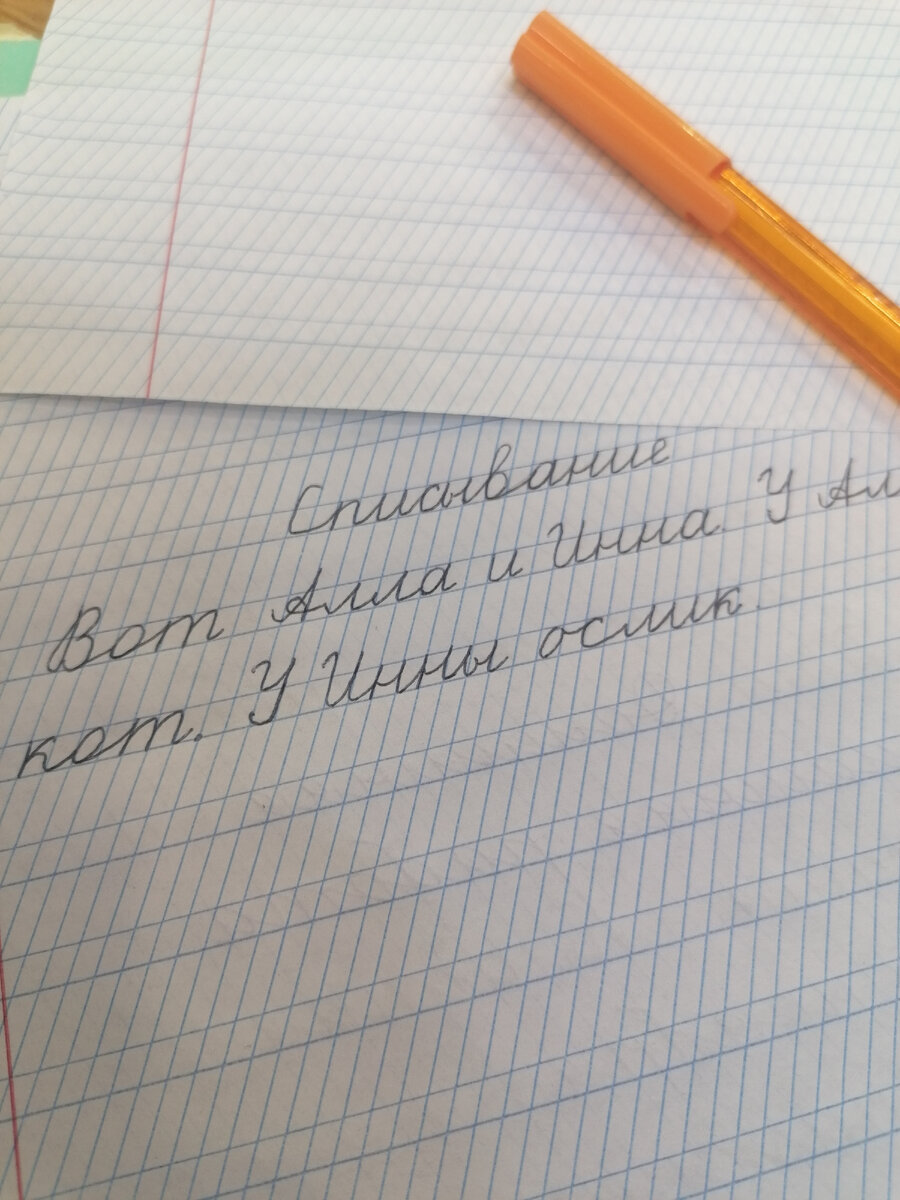 Списывание
Вот Алла и Инна. У Ал
кот. У Инны ослик.